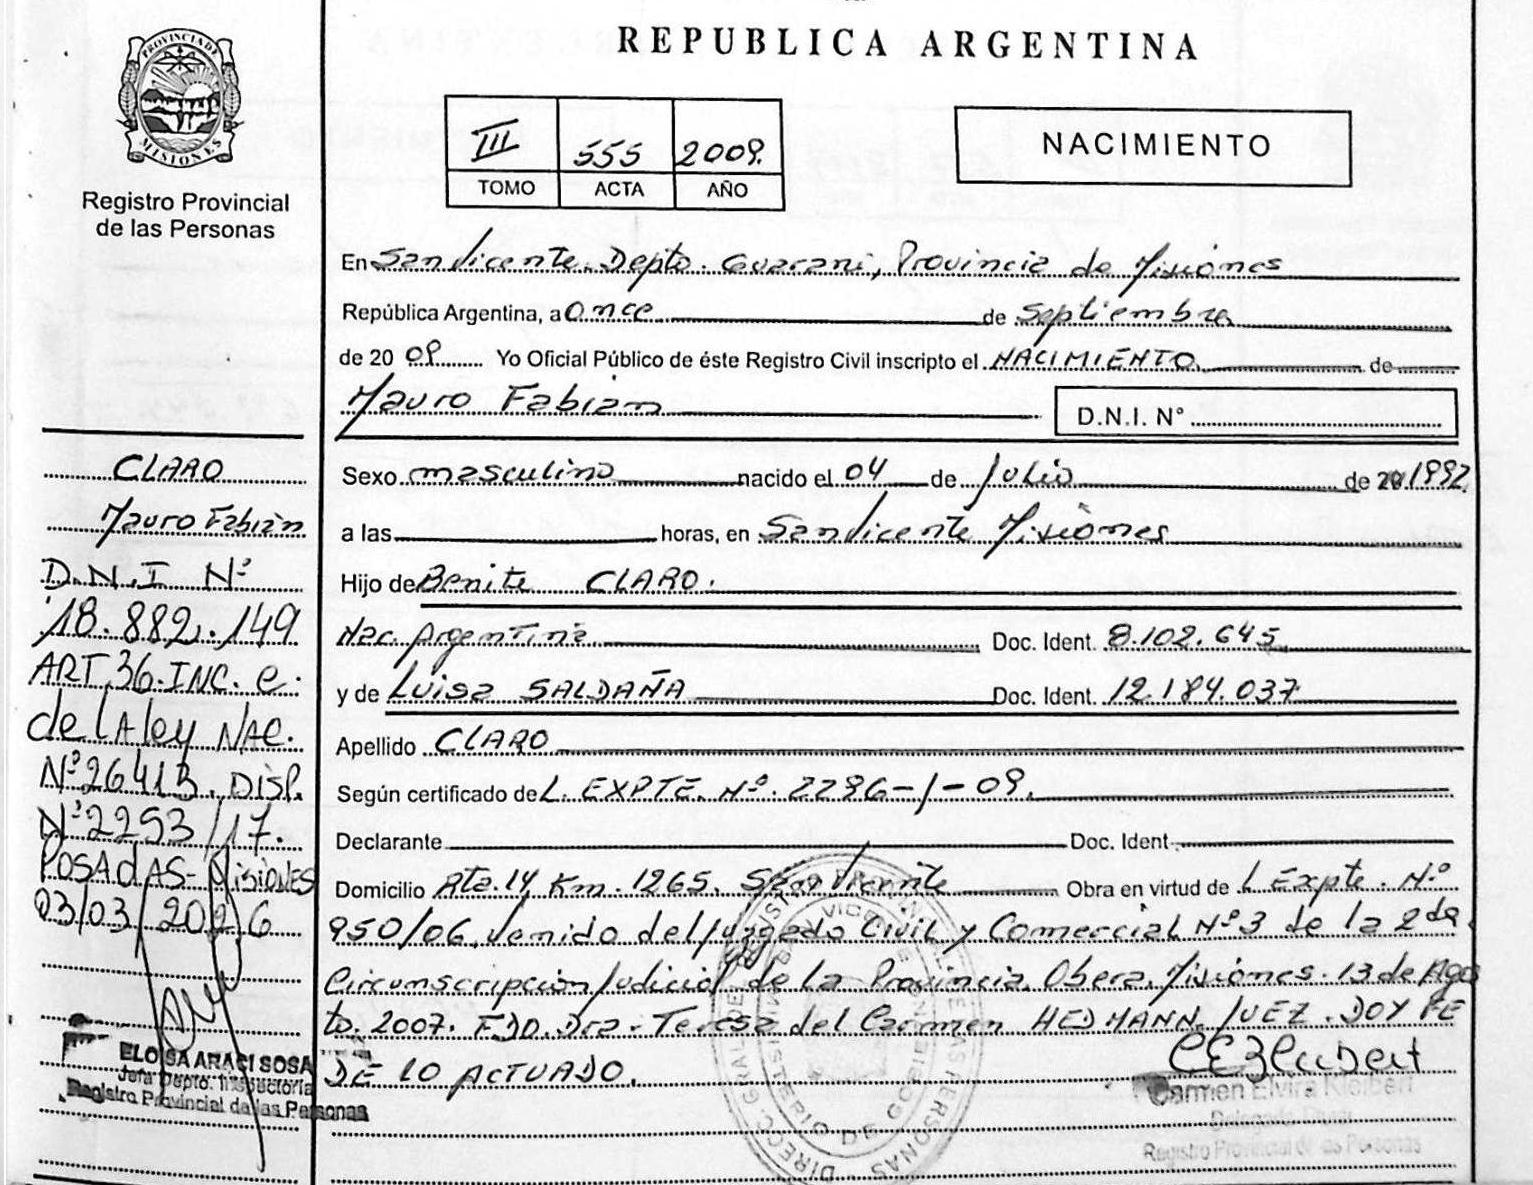 REPUBLICA ARGENTINA
PROVINCIA DE
MISIONES
Registro Provincial
de las Personas
III 555 2009.
TOMO ACTA AÑO
NACIMIENTO
En San Vicente. Depto. Guarani, Provincia de Misiones
República Argentina, a once de Septiembre
de 20 09 Yo Oficial Público de éste Registro Civil inscripto el NACIMIENTO de
Mauro Fabian
D.N.I. N°
Sexo masculino nacido el 04 de Julio de 20 1992
a las horas, en San Vicente Misiones
Hijo de Benite CLARO.
Nac. Argentina Doc. Ident. 8.102.645
y de Luisa SALDAÑA Doc. Ident. 12.184.037
Apellido CLARO
Según certificado de L. EXPTE. Nº. 2286-J-09.
Declarante Doc. Ident.
Domicilio Rta. 14 Km. 1265. San Vicente Obra en virtud de L Expte. Nº
950/06. venido del Juzgado Civil y Comercial Nº3 de la 2da
Circunscripción Judicial de la Provincia. Obera, Misiones. 13 de Agos
to. 2007. FDO. Dra. Teresa del Carmen HEDMANN. JUEZ. DOY FE
DE LO ACTUADO.
Carmen Elvira Kleibert
Delegada Titular
Registro Provincial de las Personas
CLARO
Mauro Fabián
D.N.I Nº
18.882.149
ART.36.INC. e.
de LA ley NAC.
Nº26413. DISP.
Nº2253/17.
POSADAS-Misiones
03/03/2026
ELOISA ARACI SOSA
Jefa Depto. Inspectoria
Registro Provincial de las Personas